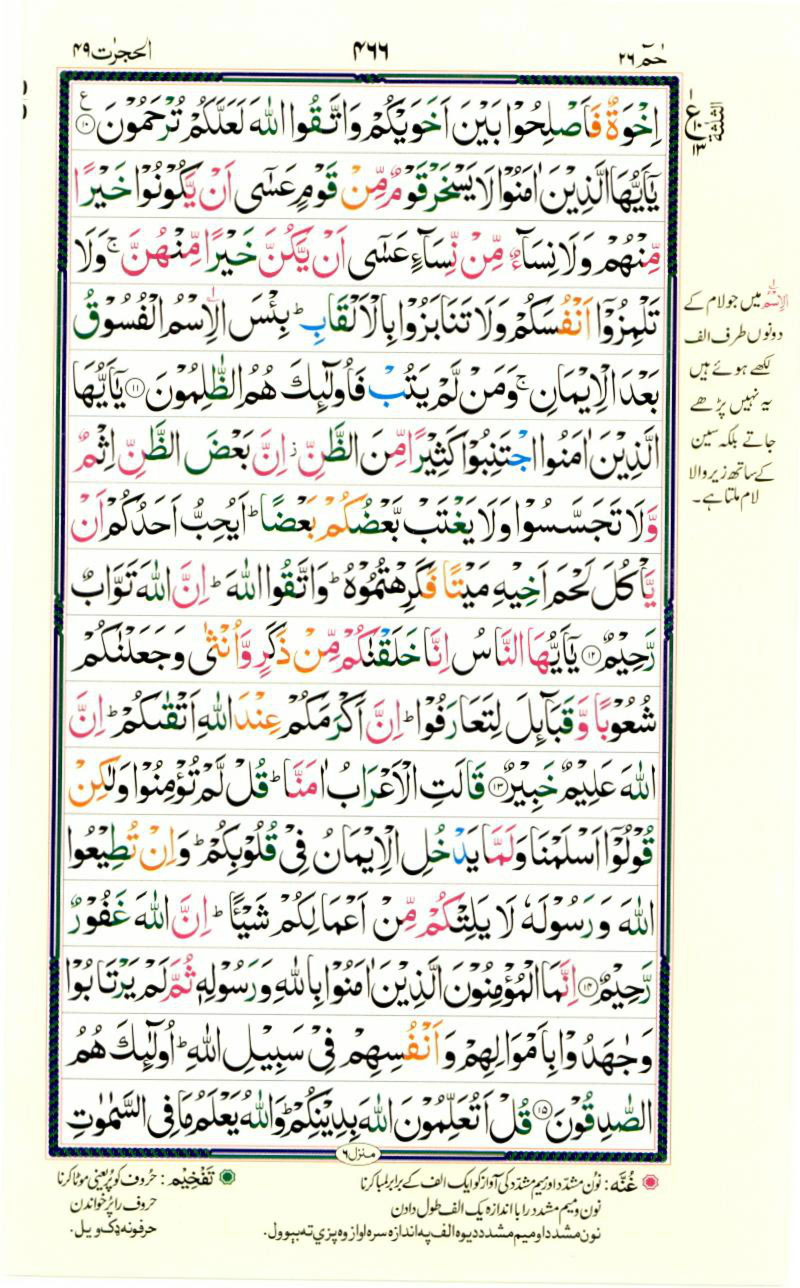 حٰمٓ ۲۶
۴۶۶
الحجرٰت ۴۹
اِخْوَةٌ فَاَصْلِحُوْا بَيْنَ اَخَوَيْكُمْ وَاتَّقُوا اللّٰهَ لَعَلَّكُمْ تُرْحَمُوْنَ ۱۰ ع
يٰۤاَيُّهَا الَّذِيْنَ اٰمَنُوْا لَا يَسْخَرْ قَوْمٌ مِّنْ قَوْمٍ عَسٰۤى اَنْ يَّكُوْنُوْا خَيْرًا
مِّنْهُمْ وَلَا نِسَآءٌ مِّنْ نِّسَآءٍ عَسٰۤى اَنْ يَّكُنَّ خَيْرًا مِّنْهُنَّ ۚ وَلَا
تَلْمِزُوْۤا اَنْفُسَكُمْ وَلَا تَنَابَزُوْا بِالْاَلْقَابِ ؕ بِئْسَ الِاسْمُ الْفُسُوْقُ
بَعْدَ الْاِيْمَانِ ۚ وَمَنْ لَّمْ يَتُبْ فَاُولٰٓئِكَ هُمُ الظّٰلِمُوْنَ ۱۱ يٰۤاَيُّهَا
الَّذِيْنَ اٰمَنُوا اجْتَنِبُوْا كَثِيْرًا مِّنَ الظَّنِّ ز اِنَّ بَعْضَ الظَّنِّ اِثْمٌ
وَّلَا تَجَسَّسُوْا وَلَا يَغْتَبْ بَّعْضُكُمْ بَعْضًا ؕ اَيُحِبُّ اَحَدُكُمْ اَنْ
يَّاْكُلَ لَحْمَ اَخِيْهِ مَيْتًا فَكَرِهْتُمُوْهُ ؕ وَاتَّقُوا اللّٰهَ ؕ اِنَّ اللّٰهَ تَوَّابٌ
رَّحِيْمٌ ۱۲ يٰۤاَيُّهَا النَّاسُ اِنَّا خَلَقْنٰكُمْ مِّنْ ذَكَرٍ وَّاُنْثٰى وَجَعَلْنٰكُمْ
شُعُوْبًا وَّقَبَآئِلَ لِتَعَارَفُوْا ؕ اِنَّ اَكْرَمَكُمْ عِنْدَ اللّٰهِ اَتْقٰىكُمْ ؕ اِنَّ
اللّٰهَ عَلِيْمٌ خَبِيْرٌ ۱۳ قَالَتِ الْاَعْرَابُ اٰمَنَّا ؕ قُلْ لَّمْ تُؤْمِنُوْا وَلٰكِنْ
قُوْلُوْۤا اَسْلَمْنَا وَلَمَّا يَدْخُلِ الْاِيْمَانُ فِيْ قُلُوْبِكُمْ ؕ وَاِنْ تُطِيْعُوا
اللّٰهَ وَرَسُوْلَهٗ لَا يَلِتْكُمْ مِّنْ اَعْمَالِكُمْ شَيْئًا ؕ اِنَّ اللّٰهَ غَفُوْرٌ
رَّحِيْمٌ ۱۴ اِنَّمَا الْمُؤْمِنُوْنَ الَّذِيْنَ اٰمَنُوْا بِاللّٰهِ وَرَسُوْلِهٖ ثُمَّ لَمْ يَرْتَابُوْا
وَجٰهَدُوْا بِاَمْوَالِهِمْ وَاَنْفُسِهِمْ فِيْ سَبِيْلِ اللّٰهِ ؕ اُولٰٓئِكَ هُمُ
الصّٰدِقُوْنَ ۱۵ قُلْ اَتُعَلِّمُوْنَ اللّٰهَ بِدِيْنِكُمْ ؕ وَاللّٰهُ يَعْلَمُ مَا فِي السَّمٰوٰتِ
منزل ۶
الثلٰثة
ع ۱ ۱۰ ۱۳
الِاسْمُ میں جو لام کے
دونوں طرف الف
لکھے ہوئے ہیں
یہ نہیں پڑھے
جاتے بلکہ سین
کے ساتھ زیر والا
لام ملتا ہے۔
غُنّه : نون مشدّد اور میم مشدّد کی آواز کو ایک الف کے برابر لمبا کرنا
نون و میم مشدد را با اندازه یک الف طول دادن
نون مشدد او میم مشدد دیوه الف په اندازه سره اواز وه پزې ته بېوول.
تَفْخِيْم : حروف کو پُر یعنی موٹا کرنا
حروف را پُر خواندن
حرفونه ډک ویل.